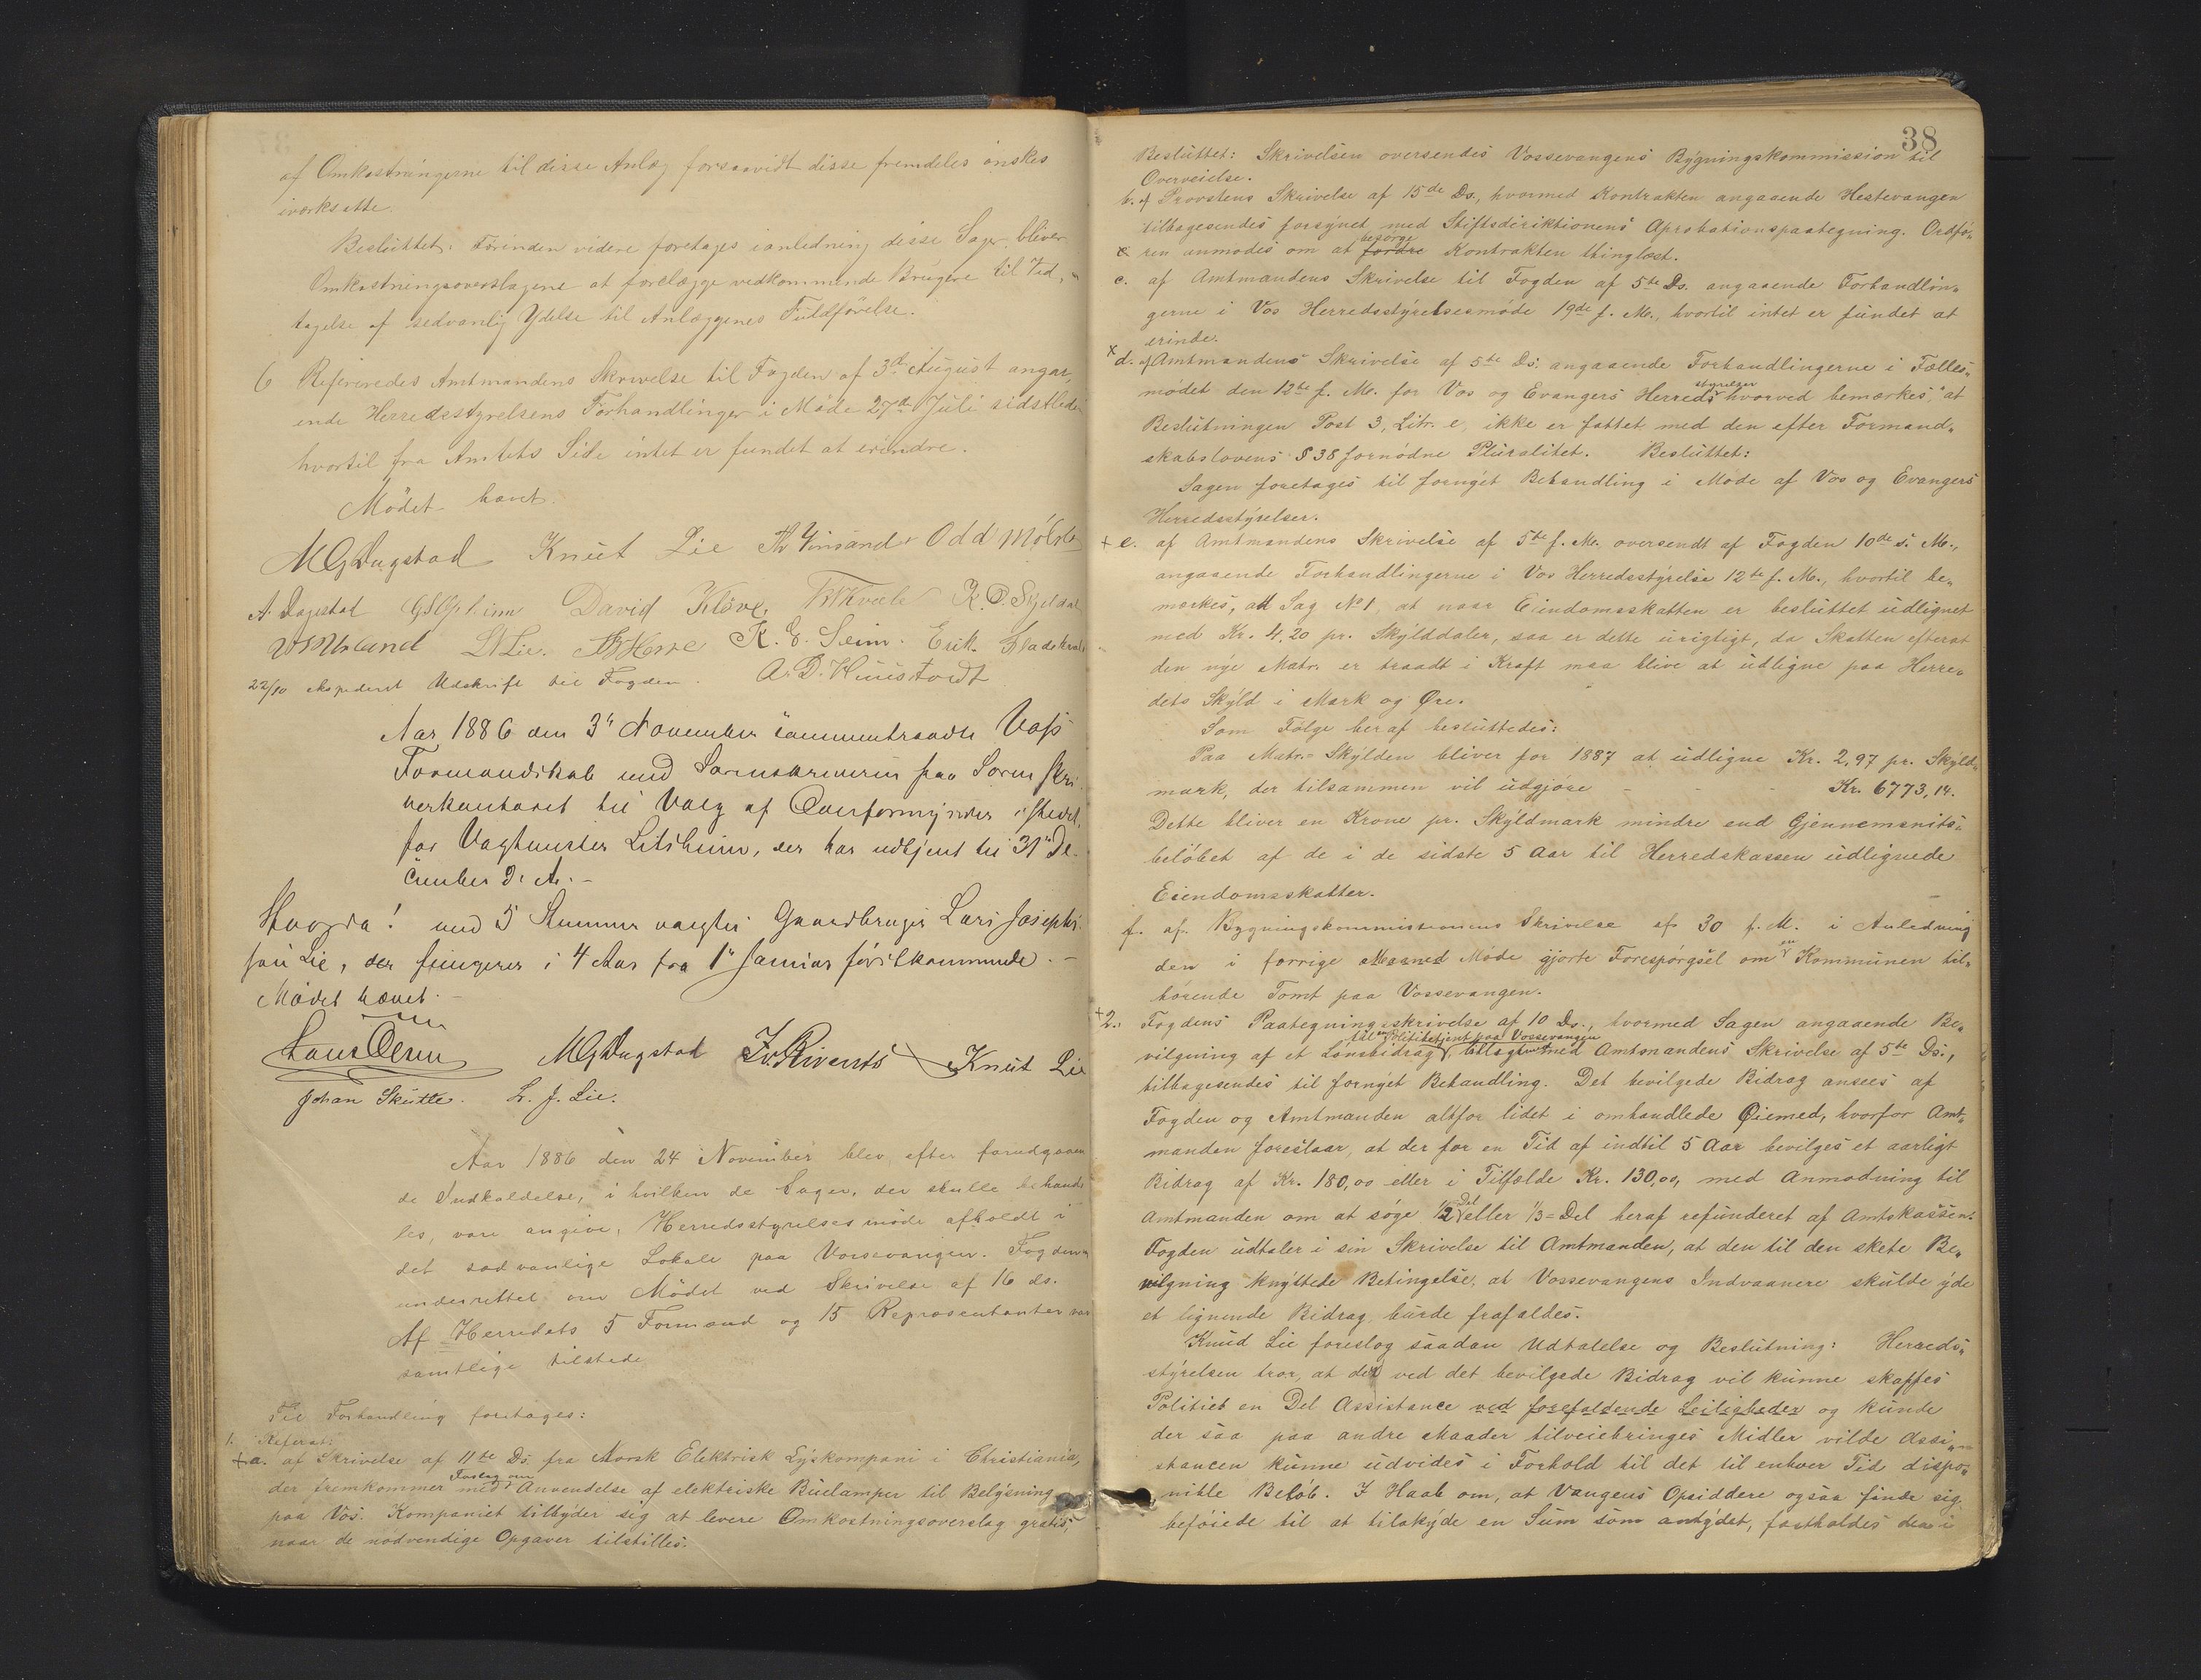 af Omkostningerne til disse Anlæg forsaavidt disse fremdeles ønskes
iværksatte.
Besluttet: Førinden videre foretages i anledning disse Sager, bliver
Omkostningsoverslagene at forelægge vedkommende Brugere til Ved-
tagelse af sedvanlig Ydelse til Anlæggenes Fuldførelse.
6 Refereredes Amtmandens Skrivelse til Fogden af 3die August angaa-
ende Herredsstyrelsens Forhandlinger i Møde 27de Juli sidstleden
hvortil fra Amtets Side intet er fundet at erindre.
Mødet hævet.
MGDugstad Knut Lie Odd Mølster
A. Dagestad David Kløve K. O. Skjeldal
L Lie. K. E. Seim. Erik
22/10 ekspederet Udskrift til Fogden.
Aar 1886 den 3' November sammentraadte Voss
Formandskab med Sorenskriveren paa Sorenskri-
verkontoret til Valg af Overformynder istedet
for Vagtmester Litsheim, der har udtjent til 31' De-
cember d. A. -
Hvorda! med 5 Stemmer valgtes Gaardbruger Lars Joseph-
son Lie, der fungerer i 4 Aar fra 1' Januar førstkommende. -
Mødet hævet. -
MGDugstad Knut Lie
Johan Skutle. L. J. Lie.
Aar 1886 den 24 November blev, efter forudgaaen-
de Indkaldelse, i hvilken de Sager, der skulle behand-
les, vare angivne, Herredsstyrelsesmøde afholdt i
det sædvanlige Lokale paa Vossevangen. Fogden
underrettet om Mødet ved Skrivelse af 16 ds.
Af Herredets 5 Formænd og 15 Repræsentanter var
samtlige tilstede
Til Forhandling foretages:
1. Referat:
+ a. af Skrivelse af 11te Ds. fra Norsk Elektrisk Lyskompani i Christiania,
der fremkommer med Forslag om Anvendelse af elektriske Buelamper til Belysning
paa Vos. Kompaniet tilbyder sig at levere Omkostningsoverslag gratis,
naar de nødvendige Opgaver tilstilles.
38
Besluttet: Skrivelsen oversendes Vossevangens Bygningskommission til
Overveielse.
b. af Provstens Skrivelse af 15de Ds., hvormed Kontrakten angaaende Hestevangen
tilbagesendes forsynet med Stiftsdirektionens Aprobationspaategning. Ordfø-
x ren anmodes om at fordre besørge Kontrakten thinglæst.
c. af Amtmandens Skrivelse til Fogden af 5te Ds. angaaende Forhandlin-
gerne i Vos Herredsstyrelsesmøde 19de f. M., hvortil intet er fundet at
erindre.
x d. af Amtmandens Skrivelse af 5te Ds. angaaende Forhandlingerne i Fælles-
mødet den 12te f. M. for Vos og Evangers Herredsstyrelser hvorved bemærkes, at
Beslutningen Post 3, Litr. e, ikke er fattet med den efter Formand-
skabslovens § 38 fornødne Pluralitet. Besluttet:
Sagen foretages til fornyet Behandling i Møde af Vos og Evangers
Herredsstyrelser.
+ e. af Amtmandens Skrivelse af 5te f. M. oversendt af Fogden 10de s. M.,
angaaende Forhandlingerne i Vos Herredsstyrelse 12te f. M., hvortil be-
mærkes, at Sag No 1, at naar Eiendomsskatten er besluttet udlignet
med Kr. 4,20 pr. Skylddaler, saa er dette urigtigt, da Skatten efterat
den nye Matr. er traadt i Kraft maa blive at udligne paa Herre-
dets Skyld i Mark og Øre.
Som Følge heraf besluttedes:
Paa Matr.-Skylden bliver for 1887 at udligne Kr. 2,97 pr. Skyld-
mark, der tilsammen vil udgjøre - - - Kr. 6773,14.
Dette bliver en Krone pr. Skyldmark mindre end Gjennemsnits-
beløbet af de i de sidste 5 Aar til Herredskassen udlignede
Eiendomsskatter.
f. af Bygningskommissionens Skrivelse af 30 f. M. i Anledning
den i forrige Maaned Møde gjorte Forespørgsel om en Kommunen til-
hørende Tomt paa Vossevangen.
+ 2. Fogdens Paategningsskrivelse af 10 Ds., hvormed Sagen angaaende Be-
vilgning af et Lønsbidrag til en Politibetjent paa Vossevangen med Amtmandens Skrivelse af 5te Ds.,
tilbagesendes til fornyet Behandling. Det bevilgede Bidrag ansees af
Fogden og Amtmanden altfor lidet i omhandlede Øiemed, hvorfor Amt-
manden foreslaar, at der for en Tid af indtil 5 Aar bevilges et aarligt
Bidrag af Kr. 180,00 eller i Tilfælde Kr. 130,00, med Anmodning til
Amtmanden om at søge 1/2 Del eller 1/3-Del heraf refunderet af Amtskassen.
Fogden udtaler i sin Skrivelse til Amtmanden, at den til den skete Be-
vilgning knyttede Betingelse, at Vossevangens Indvaanere skulde yde
et lignende Bidrag, burde frafaldes.
Knud Lie foreslog saadan Udtalelse og Beslutning: Herreds-
styrelsen tror, at der ved det bevilgede Bidrag vil kunne skaffes
Politiet en Del Assistance ved forefaldende Leiligheder og kunde
der saa paa andre Maader tilveiebringes Midler vilde Assi-
stancen kunne udvides i Forhold til det til enhver Tid dispo-
nible Beløb. I Haab om, at Vangens Opsiddere ogsaa finde sig
beføiede til at tilskyde en Sum som antydet, fastholdes den i